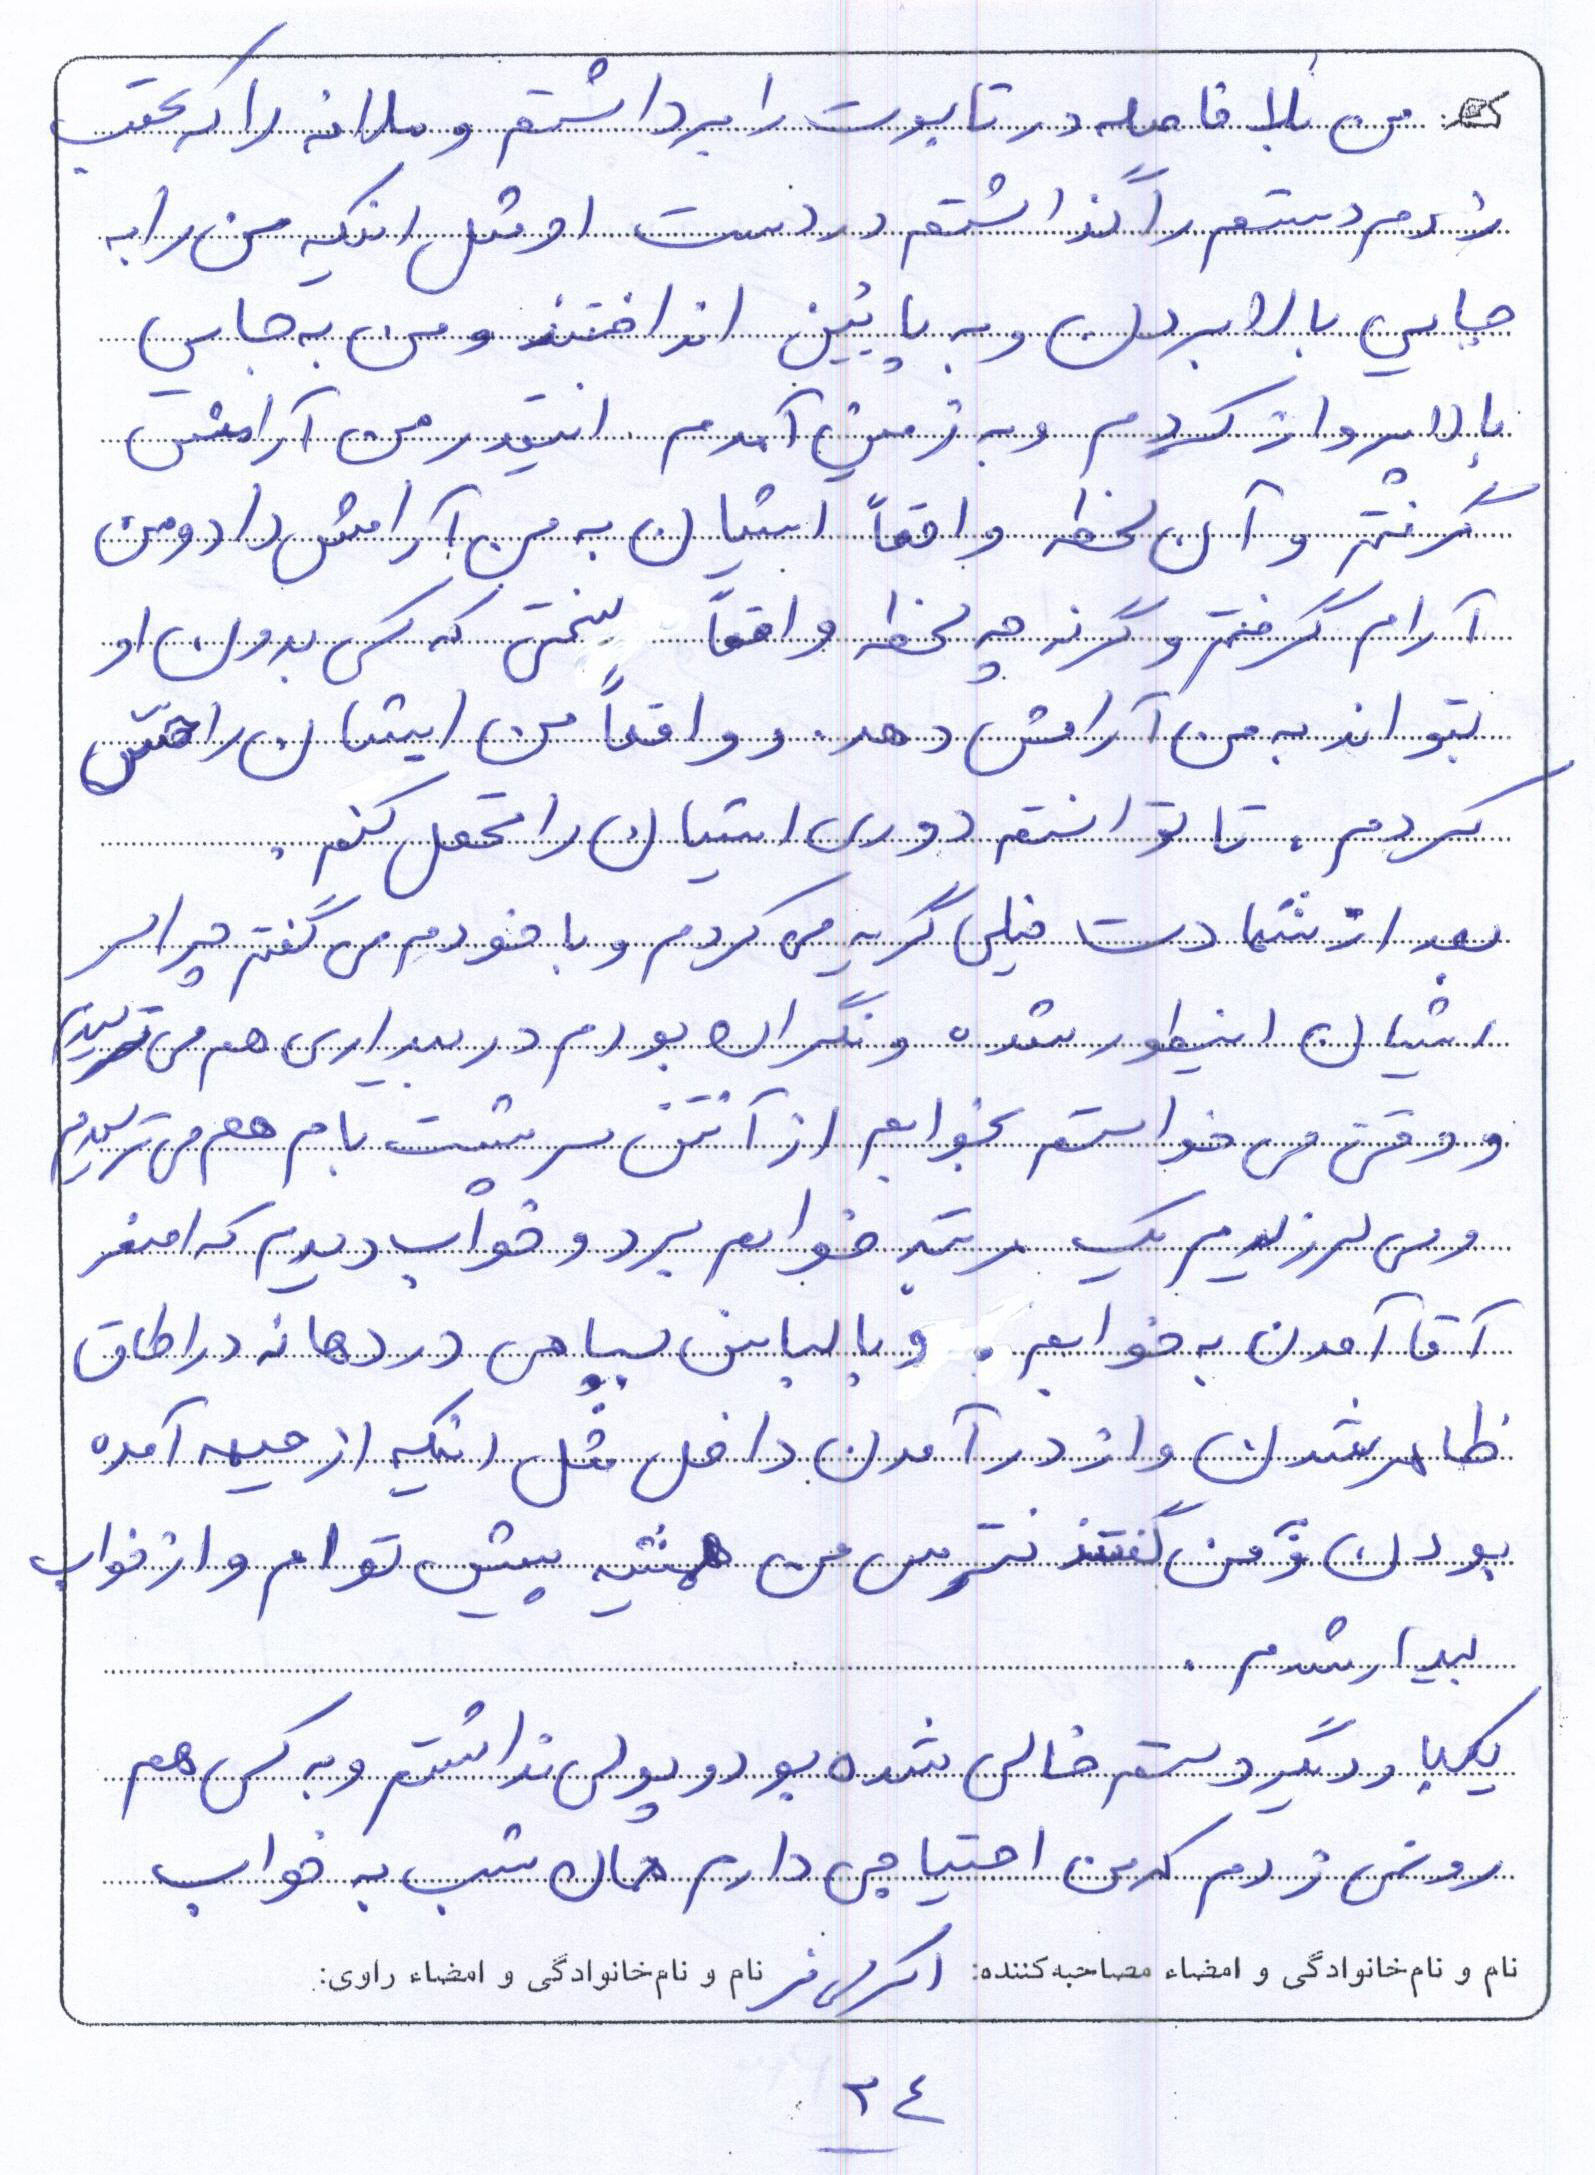 من بلا فاصله در تابوت را برداشتم و ملافه را که عقب
زدم دستم را گذاشتم در دست او مثل انکیه من را به
جایی بالا بردن و به پایین انداختند و من به جایی
بالا پرواز کردم و به زمین آمدم. انقدر من آرامش
گرفتم و آن لحظه واقعاً ایشان به من آرامش داد و من
آرام گرفتم وگرنه چه لحظه واقعاً سختی که کسی بدون او
بتواند به من آرامش دهد. و واقعاً من ایشان را حس
کردم، تا توانستم دوری ایشان را تحمل کنم.
بعد از شهادت خیلی گریه می کردم و با خودم می گفتم چرا سر
ایشان اینطور شده و نگران بودم در بیداری هم می ترسیدم
و وقتی می خواستم بخوابم از آنتن سر پشت بام هم می ترسیدم
و می لرزیدم یک مرتبه خوابم برد و خواب دیدم که اصغر
آقا آمدن به خوابم. و با لباس سپاهی در دهانه در اطاق
ظاهر شدن و از در آمدن داخل مثل انکیه از جبهه آمده
بودن و به من گفتند نترس من همیشه پیش توام و از خواب
بیدار شدم.
یکبار دیگر دستم خالی شده بود و پولی نداشتم و به کسی هم
رو نمی زدم که من احتیاجی دارم همان شب به خواب
نام و نام‌خانوادگی و امضاء مصاحبه‌کننده: نام و نام‌خانوادگی و امضاء راوی:
٢٤